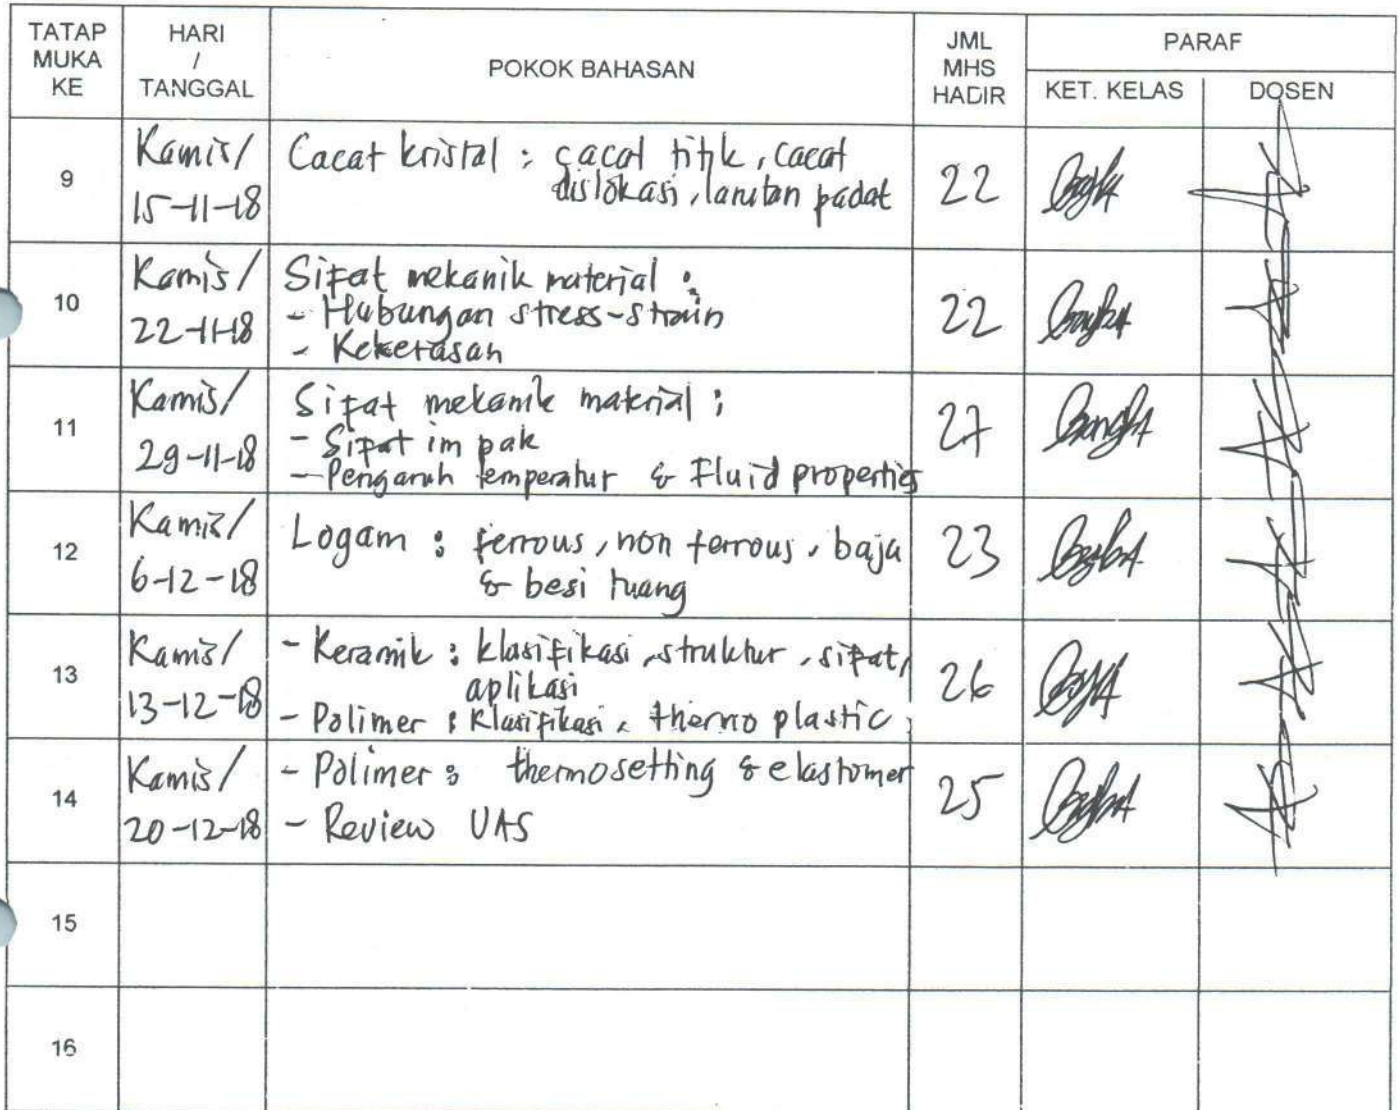 TATAP MUKA KE
HARI / TANGGAL
POKOK BAHASAN
JML MHS HADIR
PARAF
KET. KELAS
DOSEN
9
Kamis/
15-11-18
Cacat kristal : cacat titik, cacat
dislokasi, larutan padat
22
10
Kamis/
22-11-18
Sifat mekanik material :
- Hubungan stress-strain
- Kekerasan
22
11
Kamis/
29-11-18
Sifat mekanik material :
- Sifat impak
- Pengaruh temperatur & Fluid properties
27
12
Kamis/
6-12-18
Logam : ferrous, non ferrous, baja
& besi tuang
23
13
Kamis/
13-12-18
- Keramik : klasifikasi, struktur, sifat,
aplikasi
- Polimer : klasifikasi, thermo plastic
26
14
Kamis/
20-12-18
- Polimer : thermosetting & elastomer
- Review UAS
25
15
16